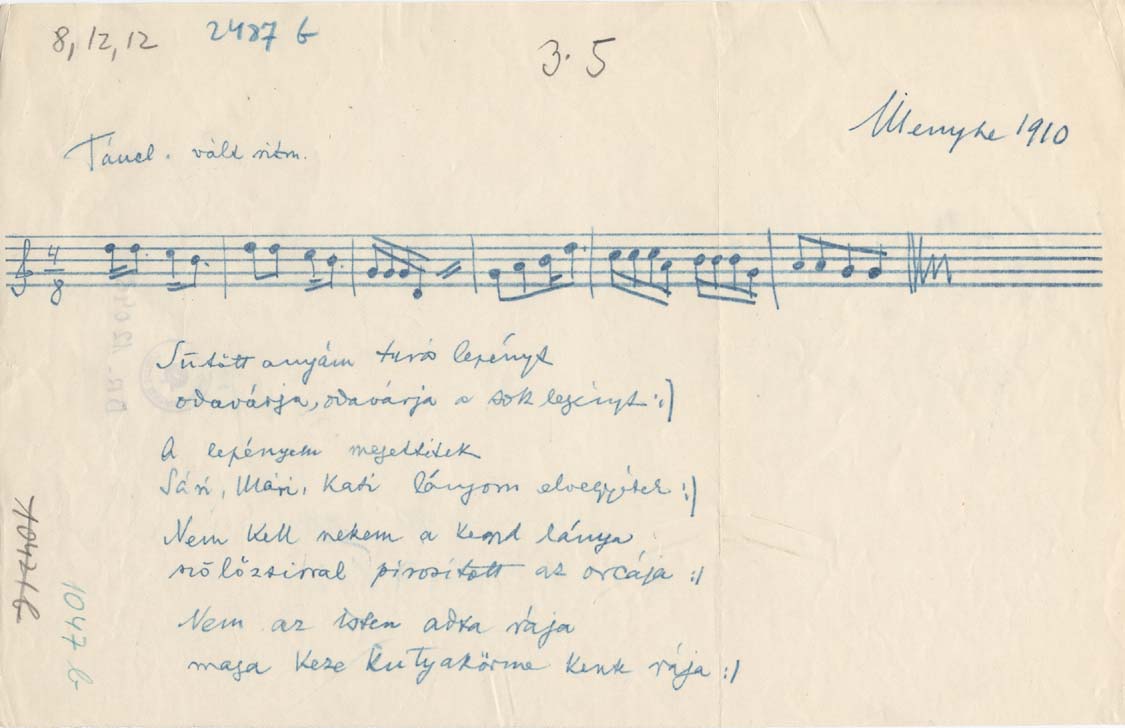 8, 12, 12 2487 b
3. 5
Menyhe 1910
Táncl. vált ritm.
4
8
Sütött anyám turós lepényt
odavárja, odavárja a sok legényt :/
A lepényem megettétek
Sári, Mári, Kati lányom elvegyétek :/
Nem kell nekem a kend lánya
szőlőzsirral pirosított az orcája :/
Nem az isten adta rája
maga keze kutyakörme kenk rája :/
1047 b